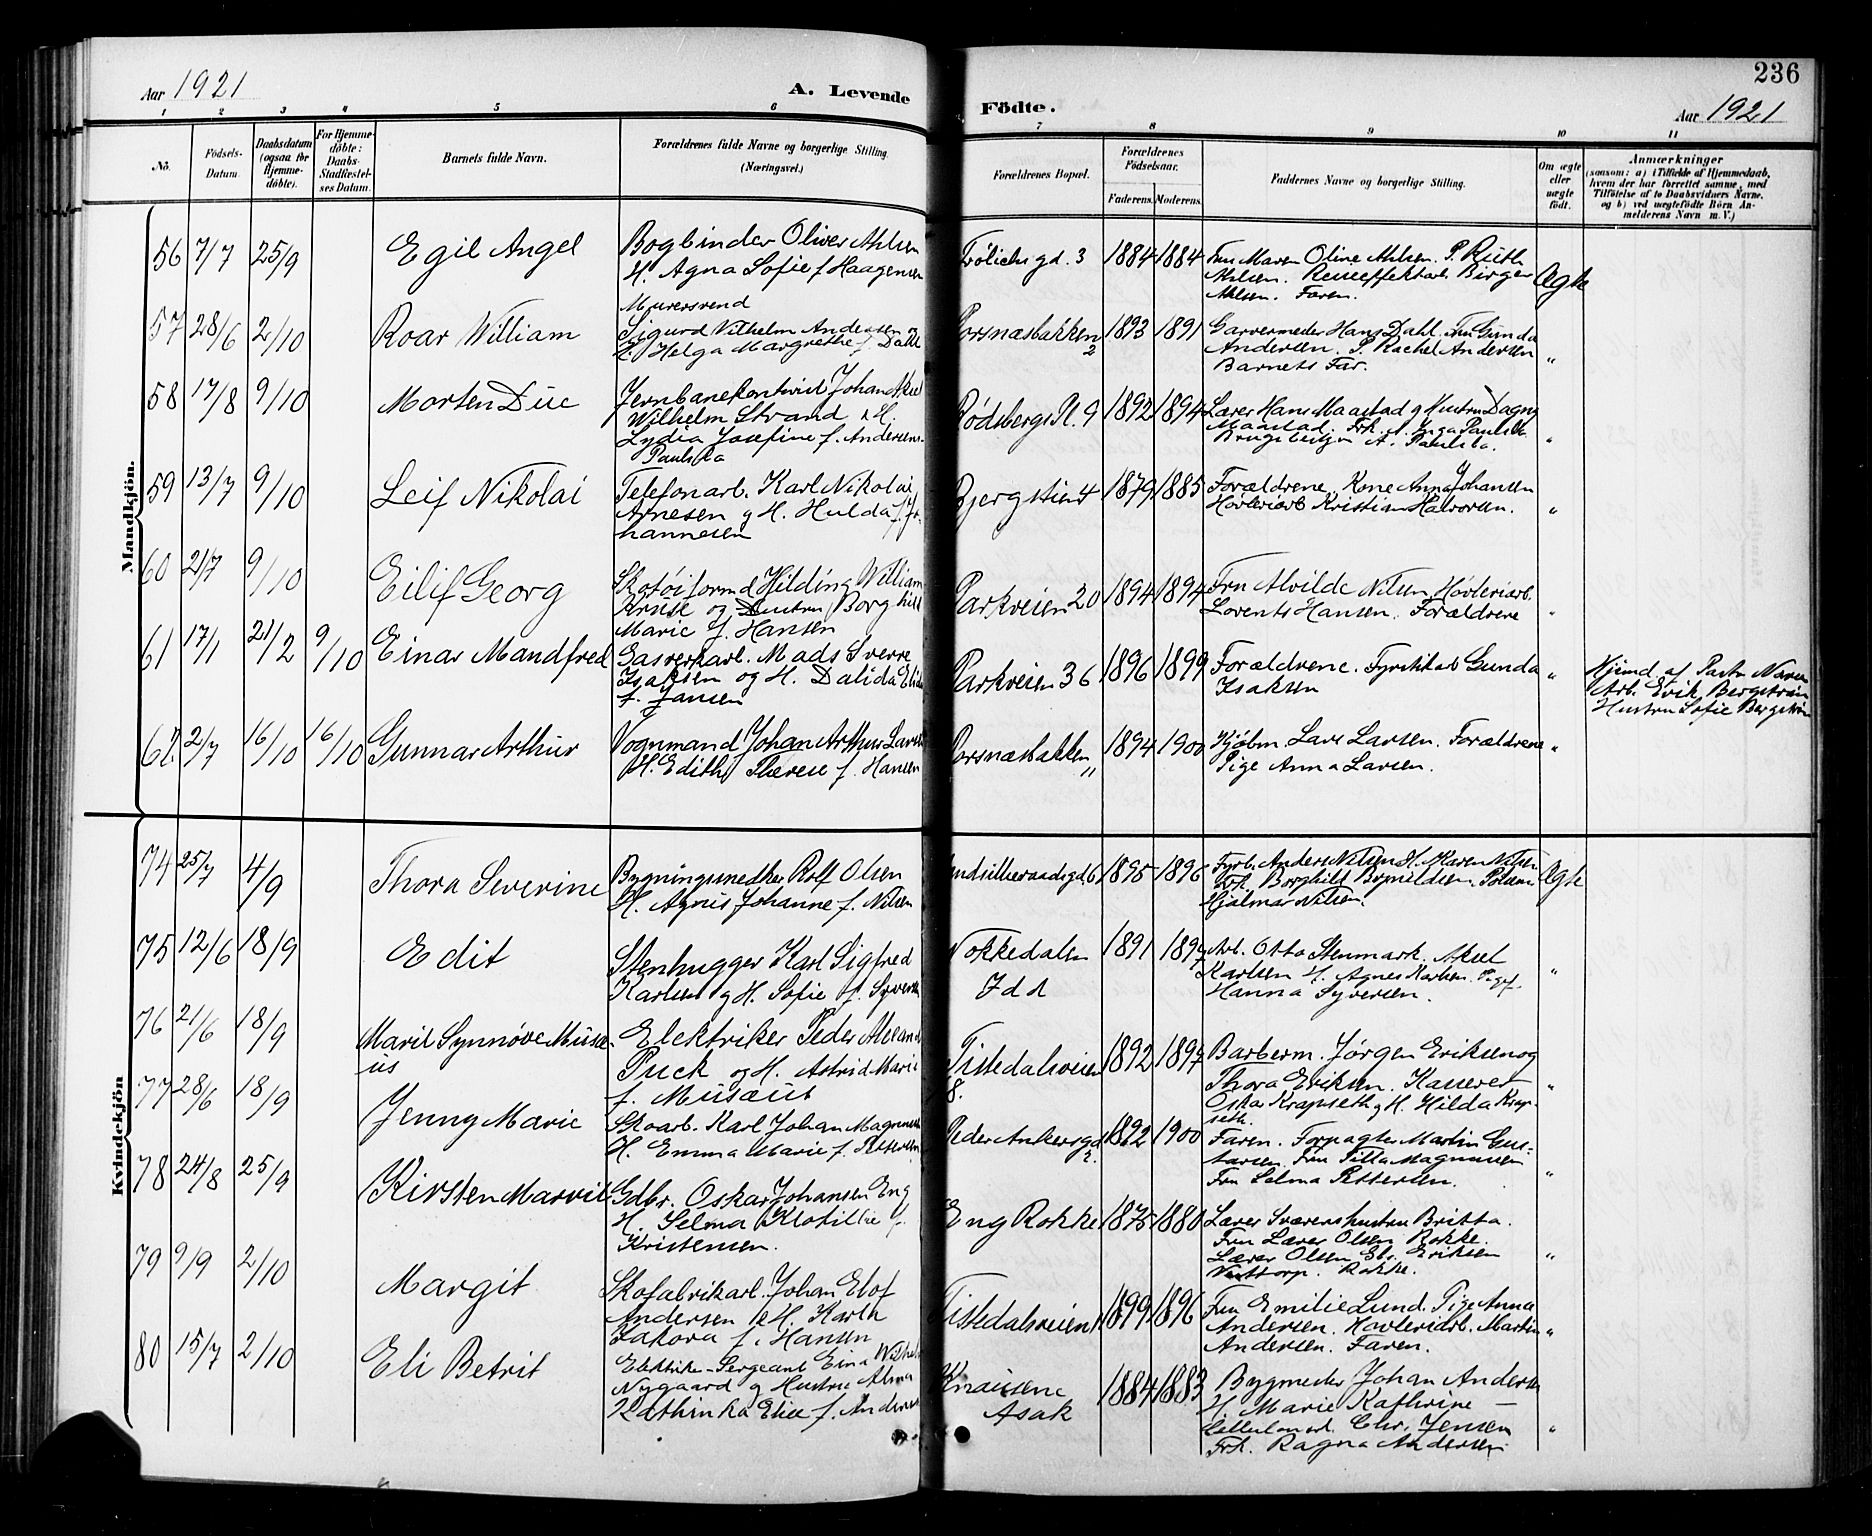 236
Aar 1921
A. Levende
Födte.
Aar 1921
1 2 3 4 5 6 7 8 9 10 11
No.
Födsels-Datum.
Daabsdatum (ogsaa for Hjemme-döbte).
For Hjemme-döbte: Daabs-Stadfæstelses Datum.
Barnets fulde Navn.
Forældrenes fulde Navne og borgerlige Stilling. (Næringsvei.)
Forældrenes Bopæl.
Forældrenes Födselsaar.
Faderens. Moderens.
Faddernes Navne og borgerlige Stilling.
Om ægte eller uægte födt.
Anmærkninger
(saasom: a) i Tilfælde af Hjemmedaab, hvem der har forrettet samme, med Tilföielse af to Daabsvidners Navne, og b) ved uægtefödte Börn Anmelderens Navn m. V.)
Mandkjön.
56 7/7 25/9 Egil Angel
Bogbinder Oliver Ahlsen
H. Agna Sofie f. Haagensen
Frølichsgd. 3 1884 1884
Fru Maren Oline Ahlsen. P. Ruth
Ahlsen. Birger
Ahlsen. Faren.
Ægte
57 28/6 2/10 Roar William
Murersvend
Sigurd Vilhelm Andersen og
H. Helga Margrethe f. Dahl
Porsnæsbakken 2 1893 1891
Garvermester Hans Dahl. Fru Gunda
Andersen. P. Rachel Andersen
Barnets Far.
"
58 17/8 9/10 Morten Due
Jernbanekontorist Johan Aksel
Wilhelm Strand & H.
Lydia Josefine f. Andersen-
Paulsbo
Rødsbergs Pl. 9 1892 1894
Lærer Hans Maastad og Hustru Dagny
Maastad. Frk. A. Inga Paulsbo
A. Paulsbo.
"
59 13/7 9/10 Leif Nikolai
Telefonarb. Karl Nikolai
Arnesen og H. Hulda f. Jo-
hannesen
Bjergstien 4 1879 1885
Forældrene. Kone Anna Johansen
Høvleriarb Kristian Halvorsen.
"
60 21/7 9/10 Eilif Georg
Skotøiformd Hilding William
Kruse og Hustru Borghild
Marie f. Hansen
Parkveien 20 1894 1894
Fru Alvilde Nilsen Høvleriarb.
Lorents Hansen. Forældrene
"
61 17/1 21/2 9/10 Einar Mandfred
Gasverkarb. Mads Sverre
Isaksen og H. Dalida Elida
f. Jansen
Parkveien 36 1896 1899
Forældrene. Gunda
Isaksen
"
Hjemd af Pastor
Arb. Erik Bergström
Hustru Sofie Bergström
62 2/7 16/10 16/10 Gunnar Arthur
Vognmand Johan Arthur Larsen
H. Edith Therese f. Hansen
Porsnæsbakken 11 1894 1900
Kjøbm. Lars Larsen. Forældrene
Pige Anna Larsen.
"
Kvindekjön
74 25/7 4/9 Thora Severine
Bygningsnedker Rolf Olsen
H. Agnes Johanne f. Nilsen
1895 1896
Fyrb. Anders Nilsen H. Karen Nilsen
Frk. Borghild Brynildsen.
Hjalmar Nilsen.
Ægte
75 12/6 18/9 Edit
Stenhugger Karl Sigfred
Karlsen og H. Sofie f. Syversen
Nokkedalen
Idd
1891 1897
Arb. Otto Stenmark. Aksel
Karlsen H. Agnes Karlsen. Pige
Hanna Syversen.
"
76 21/6 18/9 Maril Synnøve Musæ-
us
Elektriker Peder Alexander
Puck og H. Astrid Marie
f. Musæus
Tistedalsveien
18. 1892 1897
Barberm. Jørgen Eriksen og
Thora Eriksen. Kasserer
Oskar Krapseth og H. Hilda Krap-
seth.
"
77 28/6 18/9 Jenny Marie
Skoarb. Karl Johan Magnussen
H. Emma Marie f. Pettersen
Peder Ankersgd 2. 1892 1900
Faren. Forpagter Martin Gus-
tavsen. Fru Pilla Magnussen
Fru Selma Pettersen.
"
78 24/8 25/9 Kirsten Marvil
Gdbr. Oskar Johansen Eng
H. Selma Klotillie f.
Kristensen.
Eng Rokke 1875 1880
Lærer Sværens hustru Britta.
Fru Lærer Olsen Rokke.
Lærer Olsen Els. Eriksen
Rokke.
"
79 9/9 2/10 Margit
Skofabrikarb. Johan Elof
Andersen & H. Karla
Zakora f. Hansen
Tistedalsveien 1 1899 1896
Fru Emilie Lund. Pige Anna
Andersen. Høvleriarb. Martin
Andersen. Faren.
"
80 15/7 2/10 Eli Betrit
Elektrik-Sergeant Einar Wilhelm
Nygaard og Hustru Alma
Kathinka Elise f. Andersen
Knausene
Asak
1884 1883
Bygmester Johan Andersen
H Marie Kathrine —
Chr. Jensen
Frk. Ragna Andersen
"